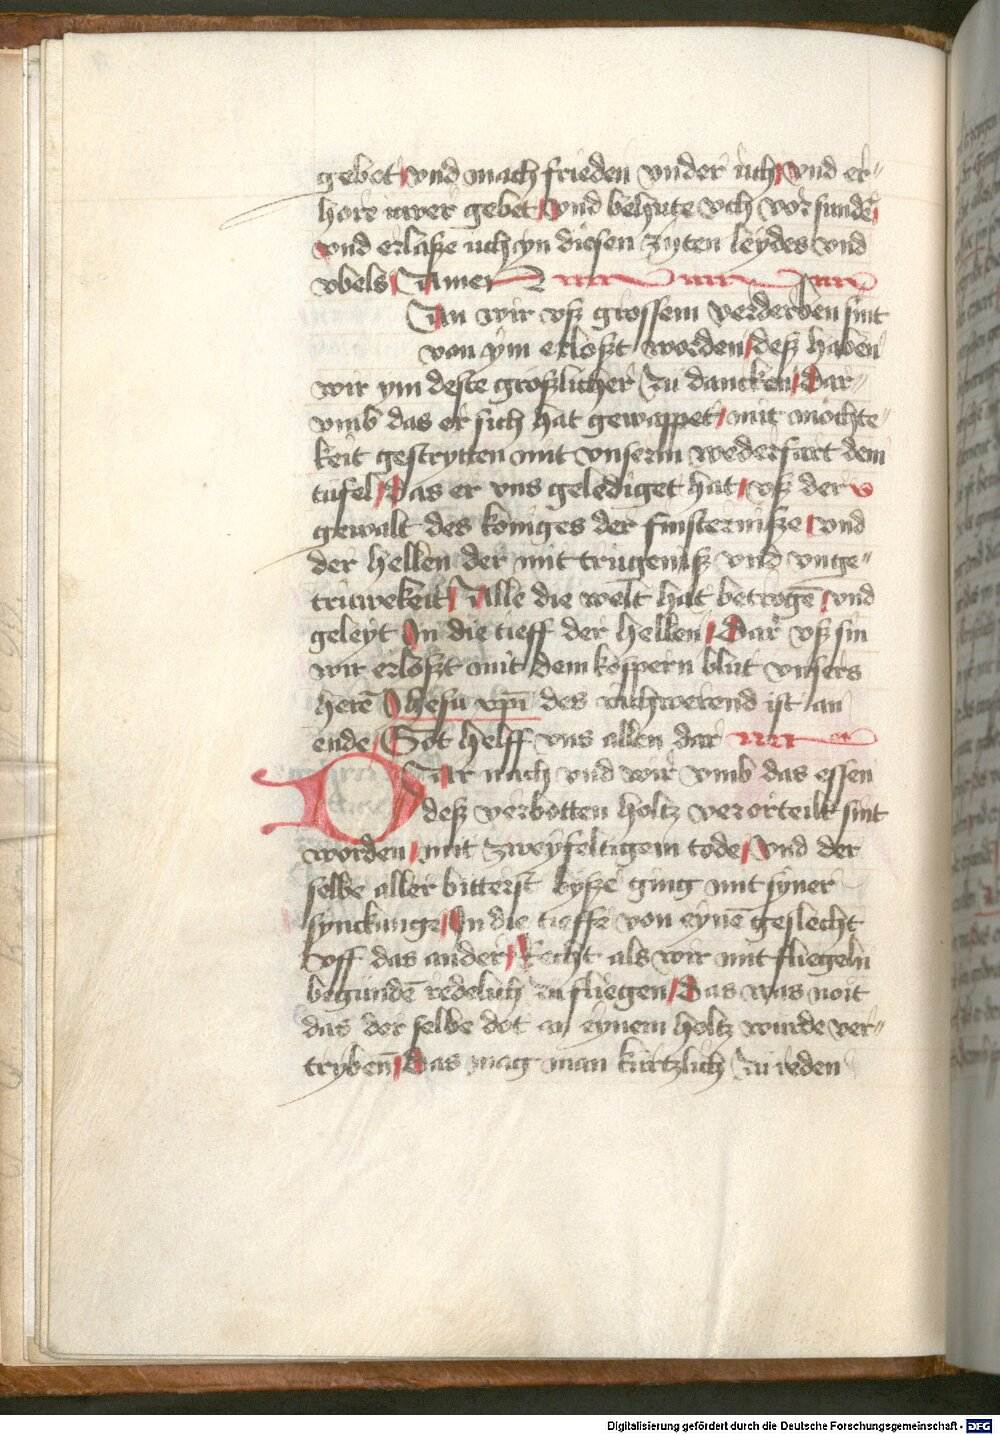 gebot / vnd mach frieden vnder uch / vnd er-
hore uwer gebet / vnd behute vch vor sundē /
vnd erlaße uch yn diesen zyten leydes vnd
vbels / Amen
An wir vß grossem verderben sint
von ym erloßt worden / deß haben
wir ym deste großlicher zu dancken / Dar-
vmb das er sich hat gewappet / mit mochte-
keit gestrytten mit vnserm wederfart dem
tufel / Das er vns gelediget hat / vß der
gewalt des koniges der finsterniße / vnd
der hellen der mit trugeniß vnd vnge-
truwekeit / Alle die welt hat betrogē / vnd
geleyt In die tieff der hellen / Dar vß sin
wir erloßt mit dem kospern blut vnsers
herē Ihesu xp̄i des richwerend ist an
ende / Got helff vns allen dar
DAr nach vnd wir vmb das essen
deß verbotten holtz verorteilt sint
worden / mit zweyfeltigem tode / Vnd der
selbe aller bitterst byße ging mit syner
synckunge / In die tieffe von eynē geslecht
vff das ander / Recht als wir mit fliegeln
begundē redelich zu fliegen / Das was noit
das der selbe dot an eynem holtz wurde ver-
trybē / Das mag man kurtzlich zu reden
Digitalisierung gefördert durch die Deutsche Forschungsgemeinschaft - DFG